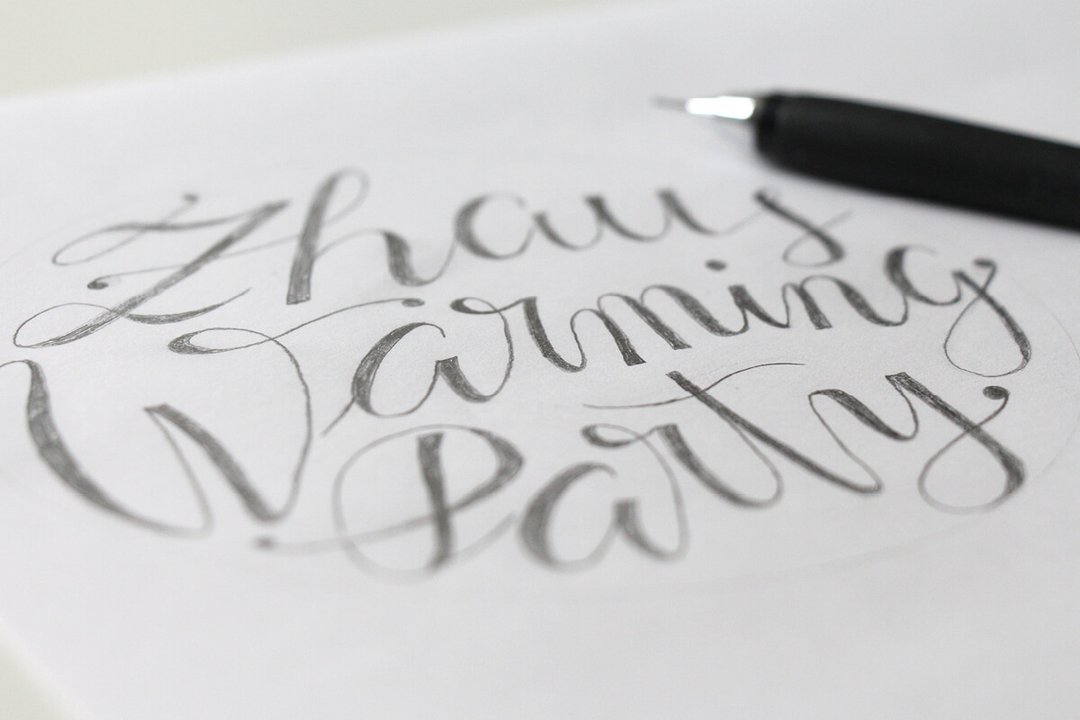 Zhaus
Warming
Party